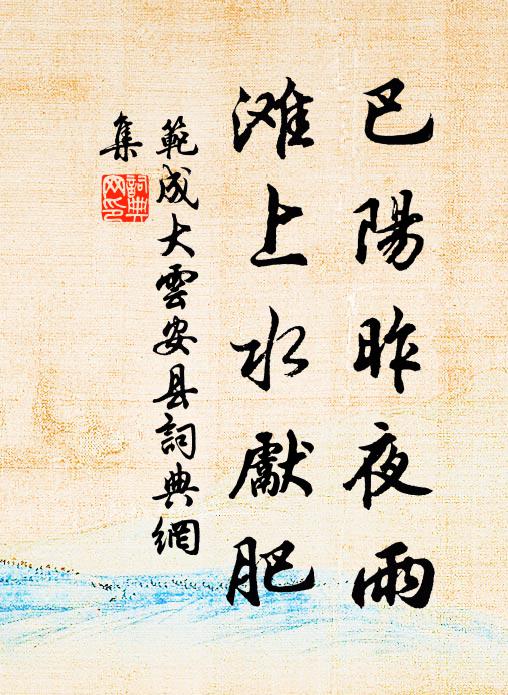 巴陽昨夜雨
滩上水獻肥
範成大雲安县詞典網
集
詞典網印